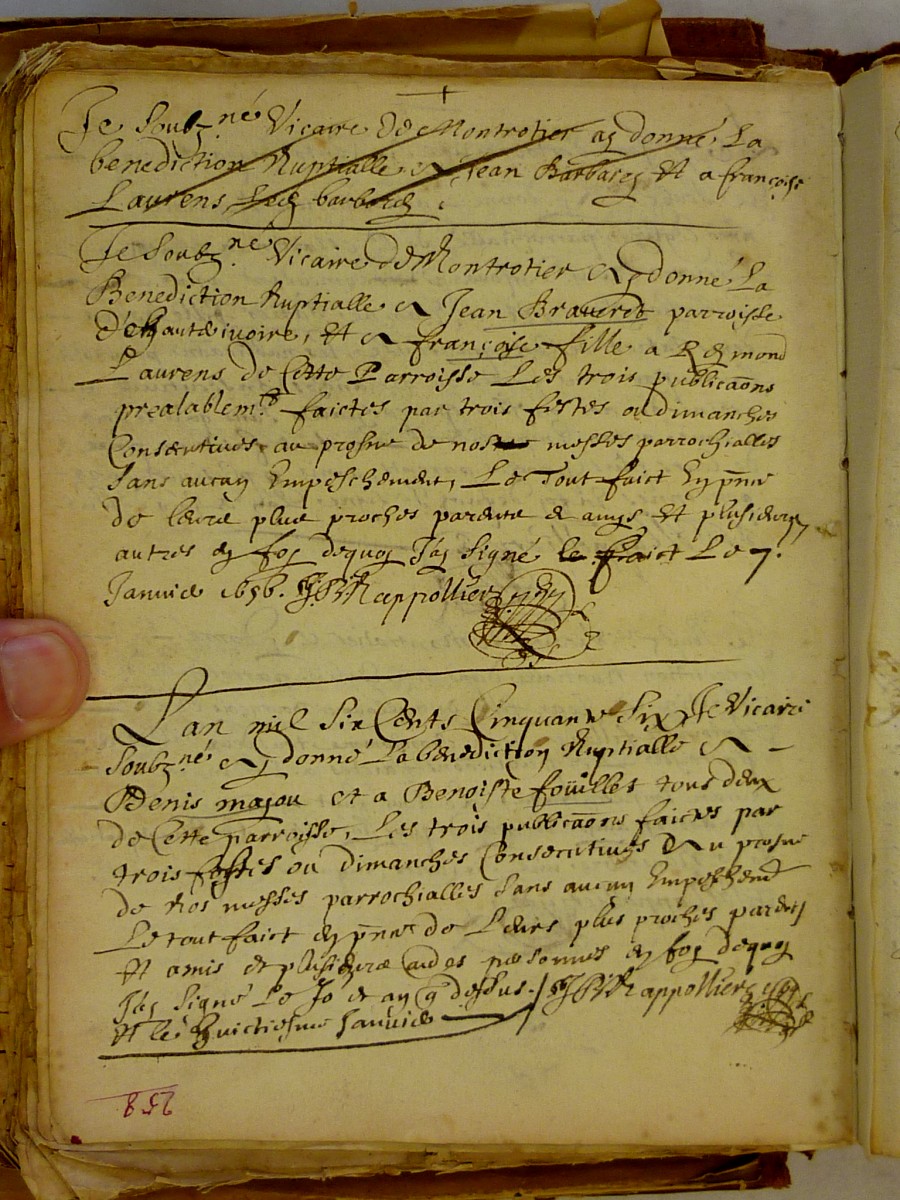 Je Soubz.né Vicaire de Montrotier ay donné La
benediction Nuptialle a Jean Barbarey Et a françoise
Laurens
Je Soubz.né Vicaire de Montrotier ay donné La
Benediction Nuptialle a Jean Braveret parroisse
D'ehautæ ivoire, Et a françoise fille a Reymond
Laurens de Cette Parroisse Les trois publicaōns
prealablem.t faictes par trois festes ou dimanches
Consecutives au prosne de nos messes parrochialles
Sans aucuy Empeschement, Le Tout faict Ey pn̄ce
de leurs plus proches parents & amys Et plusieurs
autres ey foy dequoy J'ay Signé le faict Le 7.
Janvier 1656. Rappollier
Lan mil Six Cents Cinquante Six Je Vicaire
Soubz.né ay donné La benediction Nuptialle a
Denis majou et a Benoiste fouillet tous deux
de Cette parroisse, Les trois publicaōns faictes par
trois festes ou dimanches Consecutives Au prosne
de Nos messes parrochialles Sans aucuy Empeschem.t
Le tout faict ey pn̄ce de Leurs plus proches parents
Et amis et plusieurs aultres personnes ey foy dequoy
J'ay Signé Le Jo.r & ay q̄ dessus. Rappollier
Et le huictiesme Janvier
258